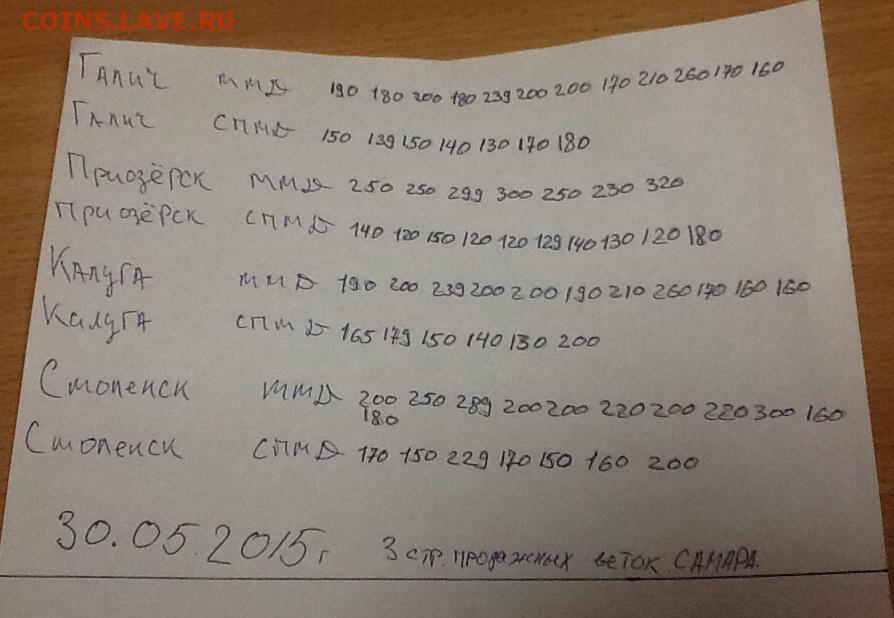 COINS.LAVE.RU
Галич ММД 190 180 200 180 239 200 200 170 210 260 170 160
Галич СПМД 150 139 150 140 130 170 180
Приозёрск ММД 250 250 299 300 250 230 320
Приозёрск СПМД 140 120 150 120 120 129 140 130 120 180
Калуга ММД 190 200 239 200 200 190 210 260 170 160 160
Калуга СПМД 165 179 150 140 130 200
Смоленск ММД 200 250 289 200 200 220 200 220 300 160
180
Смоленск СПМД 170 150 229 170 150 160 200
30.05.2015г 3 стр. продажных веток САМАРА.